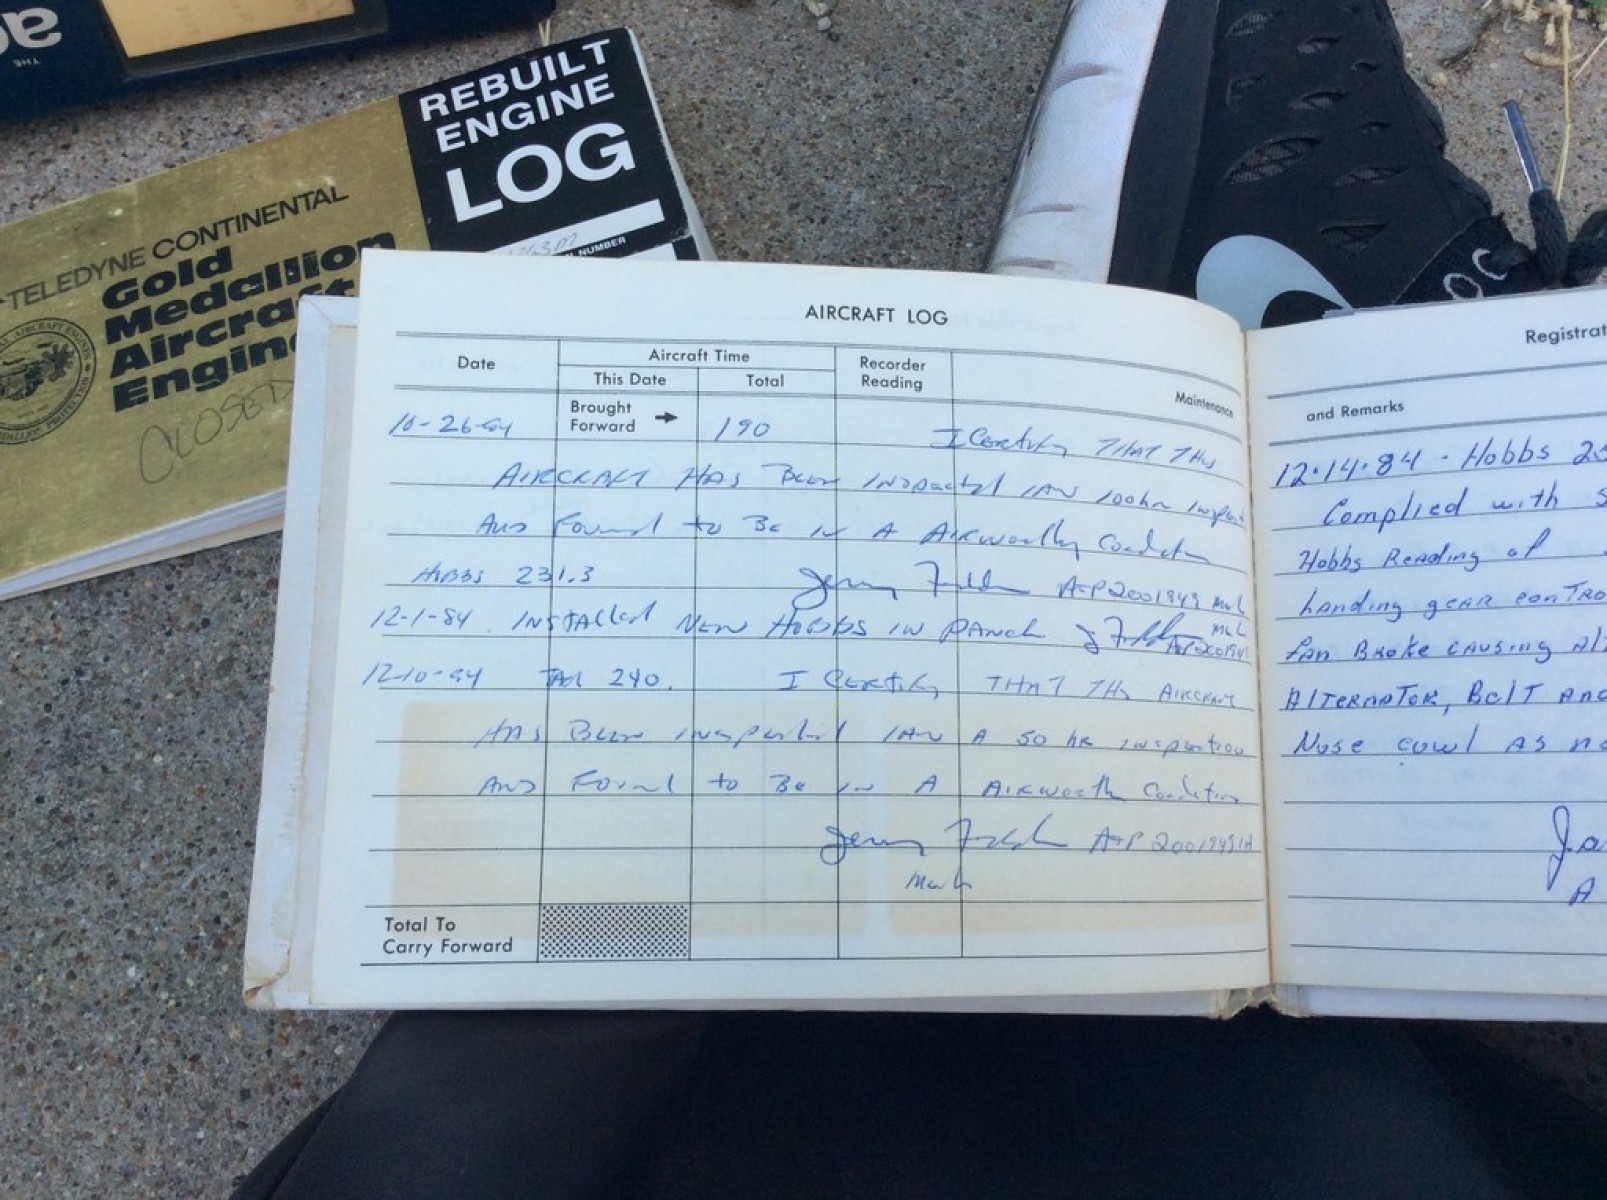 THE
REBUILT
ENGINE
LOG
NUMBER
TELEDYNE CONTINENTAL
Gold
Medallion
Aircraft
Engine
CLOSED
AIRCRAFT LOG
Date
Aircraft Time
This Date
Total
Recorder
Reading
Maintenance
10-26-84 Brought
Forward → 190 I Certify THAT THIS
AIRCRAFT HAS Been Inspected IAW 100hr Inspect
AND Found to Be in A Airworthy Condition
HOBBS 231.3 Jerry A+P 2001949
12-1-84 INSTAlled NEW HOBBS IN PANEL
12-10-84 TAC 240. I CERTIFY THAT THIS AIRCRAFT
HAS Been inspected IAW A 50 hr inspection
AND Found to Be in A Airworthy Condition
Jerry A+P
Total To
Carry Forward
Registrat
and Remarks
12.14.84 . Hobbs
Complied with
Hobbs Reading of
Landing gear contro
fan Broke causing Alt
Alternator, Belt and
Nose cowl as
A